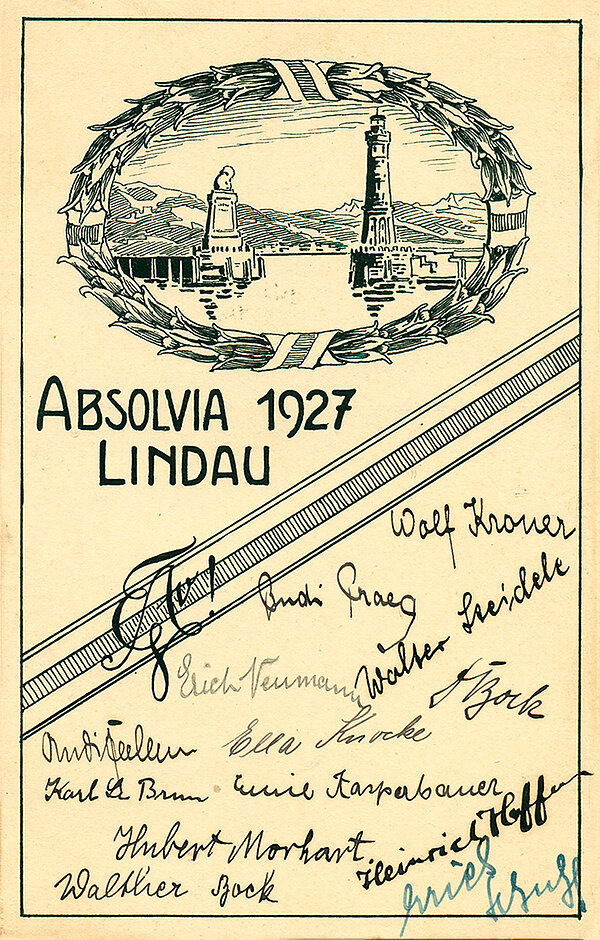 ABSOLVIA 1927
LINDAU
Wolf Kroner
Rudi
Walter Steidele
Erich Neumann
Bock
Ella Knocke
Karl Le Brun
Emil Kasperbauer
Hubert Morhart
Heinrich Hoffmann
Walther Bock
Erich